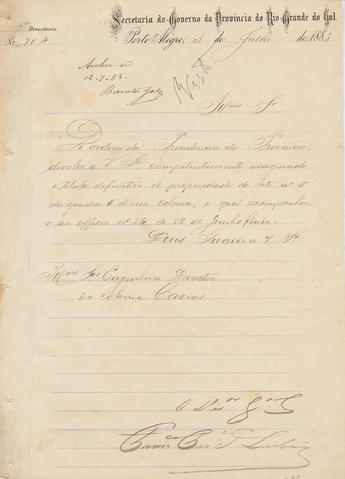 Secretaria do Governo da Provincia do Rio Grande do Sul.
Directoria
Nº 704
Porto Alegre, 3 de Julho de 1883
Archive-se
12-7-83
Visto
Illmo Sr
De ordem da Presidencia da Provincia,
devolvo a V Sª competentemente assignado
o titulo definitivo de propriedade do lote nº 5
da quadra 6 d'essa colonia, o qual acompanhou
o seu officio nº de 22 de Junho findo.
Deus Guarde a V Sª
Illmo Sr Engenheiro Director
da colonia Caxias
O